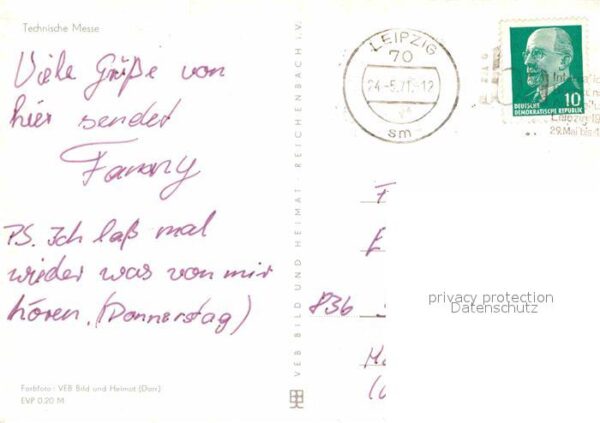 Technische Messe
Viele Grüße von
hier sendet
Fanny
PS. Ich laß mal
wieder was von mir
hören. (Donnerstag)
Farbfoto: VEB Bild und Heimat (Darr)
EVP 0,20 M
VEB BILD UND HEIMAT · REICHENBACH i. V.
LEIPZIG
70
24.-5.71.-12
sm
DEUTSCHE
DEMOKRATISCHE REPUBLIK
10
Internatio
29. Mai bis
836
privacy protection
Datenschutz